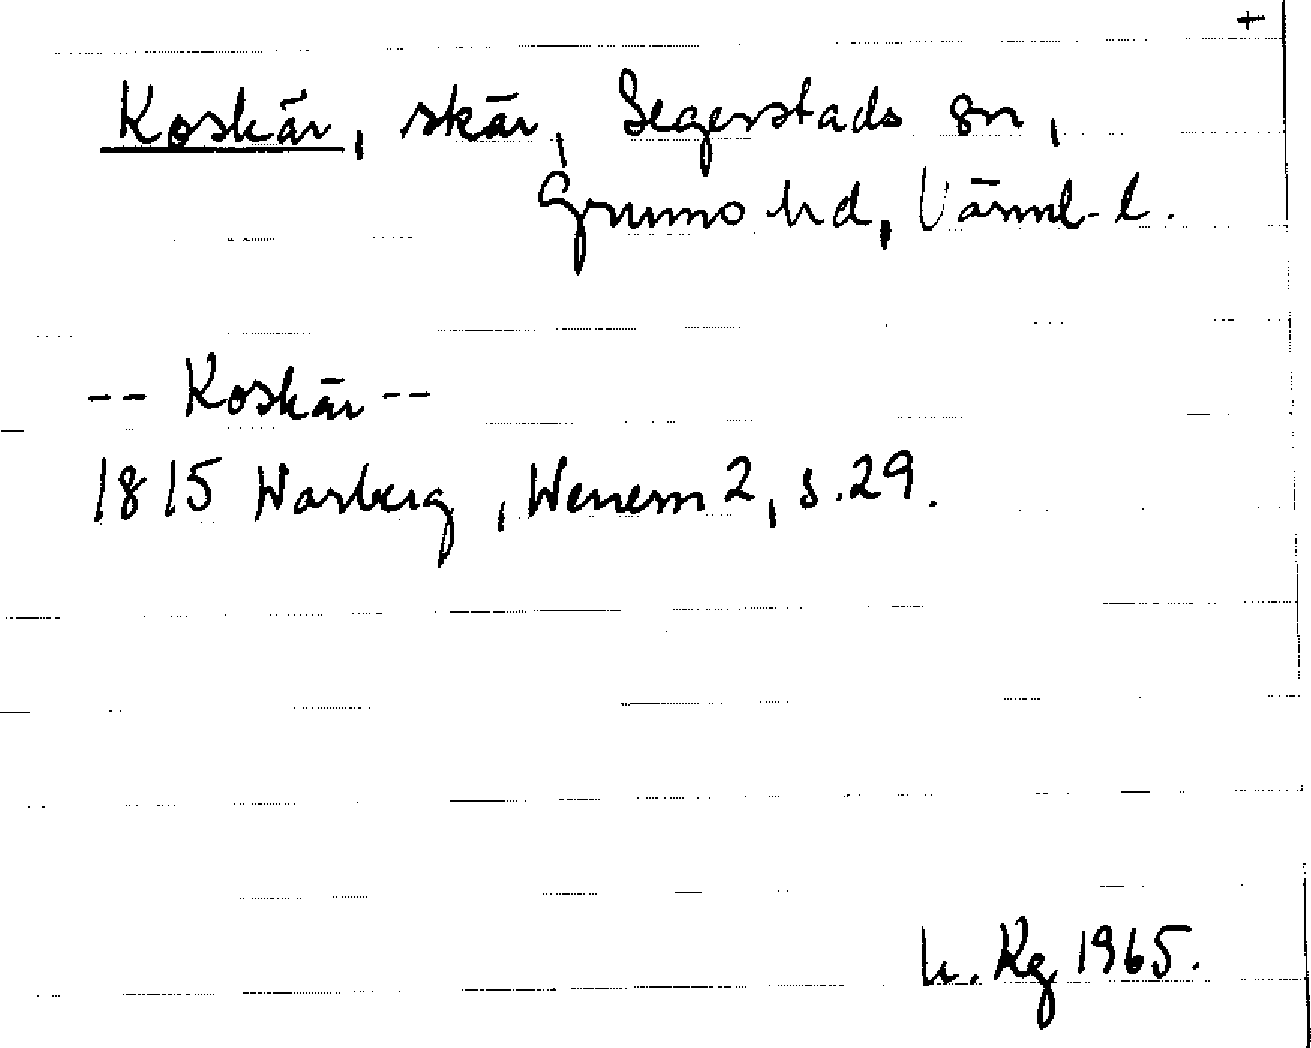 +
Koskär, skär, Segerstads sn,
Grums hd, Värml. l.
-- Koskär --
1815 Warberg, Wenern 2, s. 29.
h. Kg 1965.